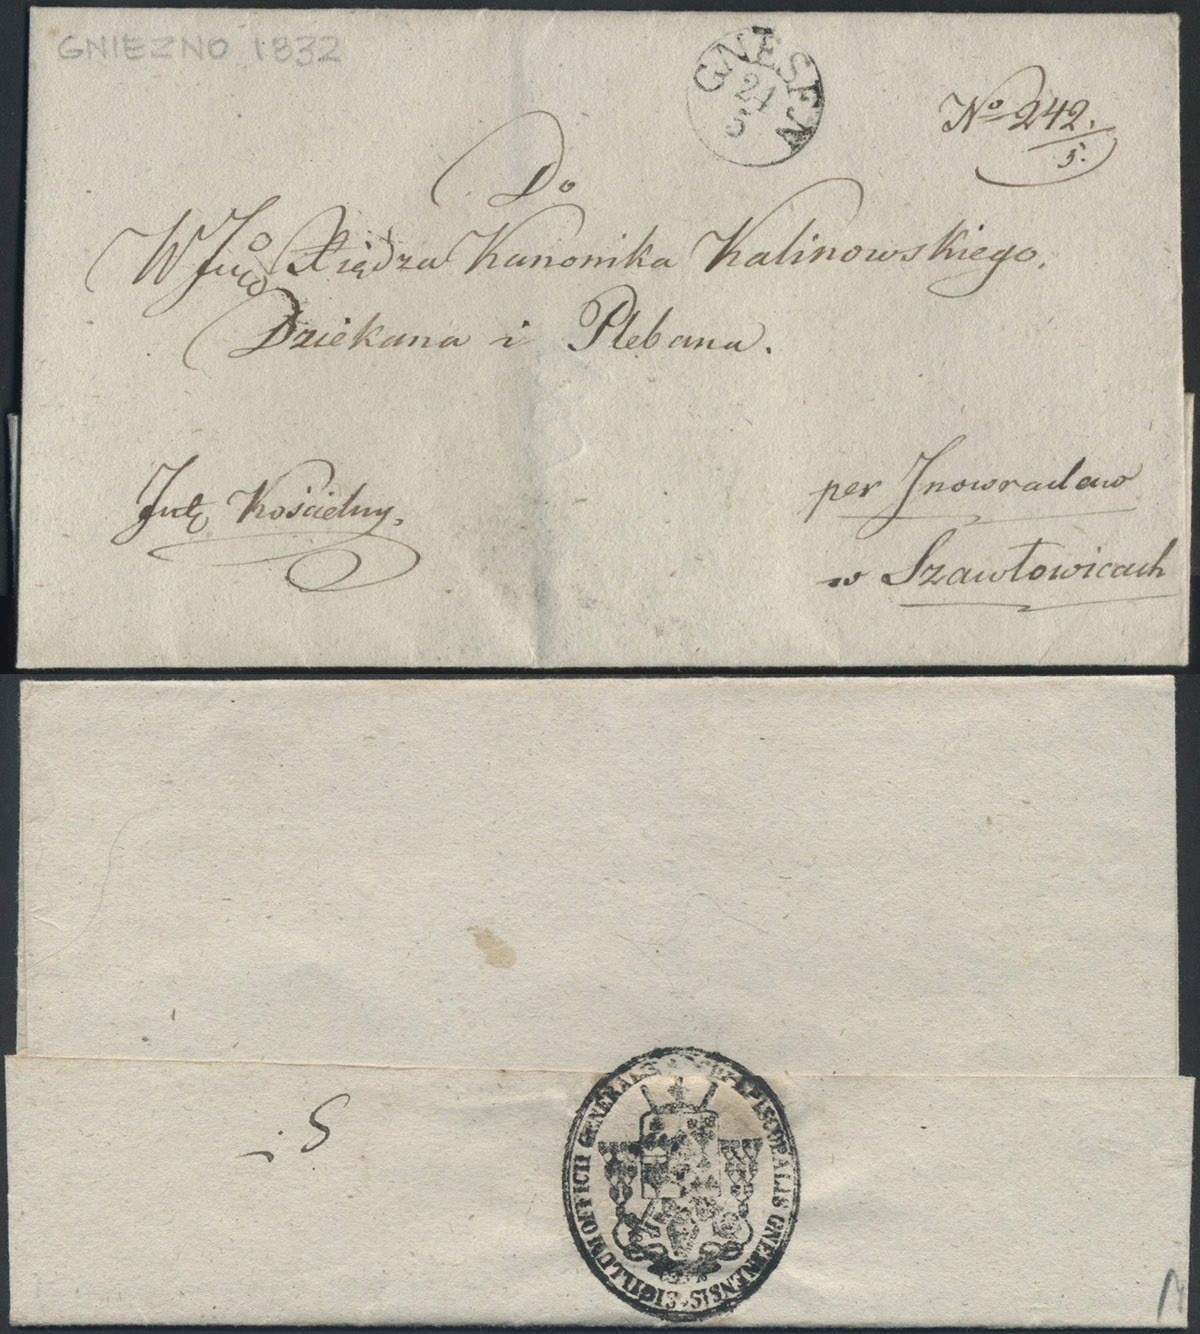 GNIEZNO 1832
GNESEN
24
5
No 242.
5.
Do
WJo
Jmco Xiędza Kanonika Kalinowskiego,
Dziekana i Plebana.
Kościelny.
per Jnowracław
w Szawłowicach
5.
SIGILLUM OFFICII GENERALIS ARCHIEPISCOPALIS GNESNENSIS